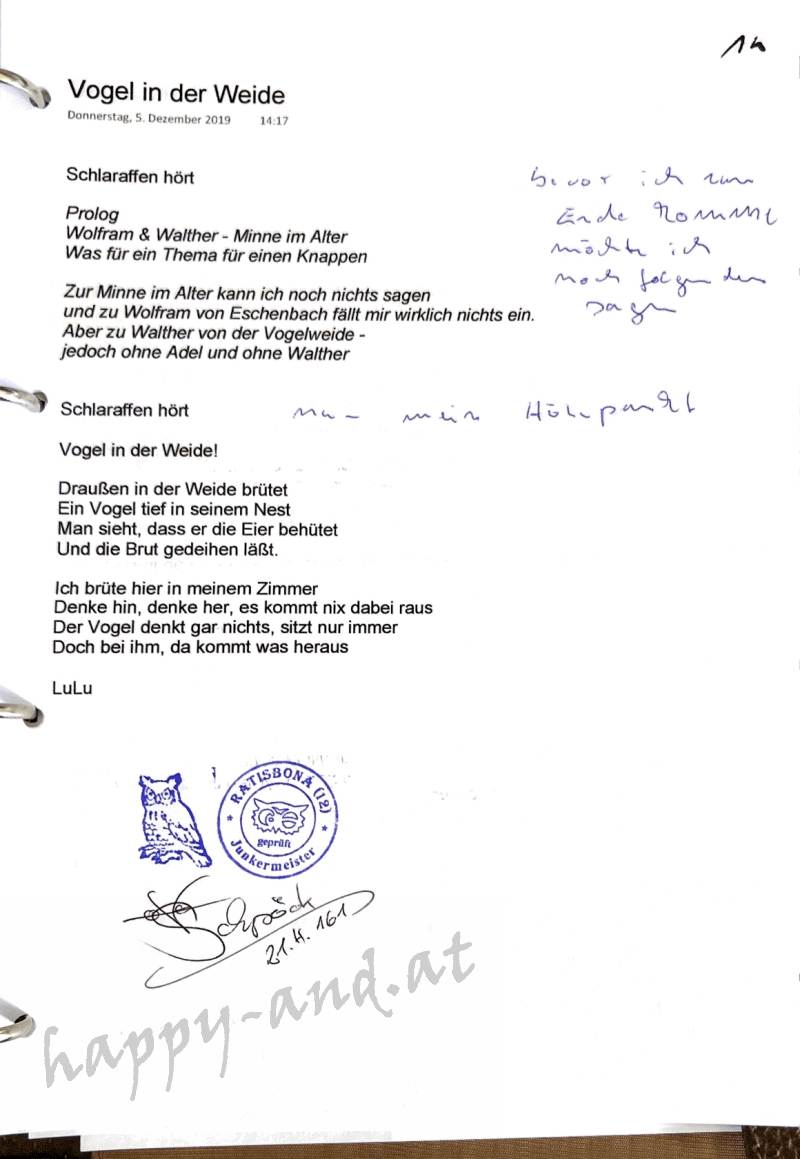 14
Vogel in der Weide
Donnerstag, 5. Dezember 2019 14:17
Schlaraffen hört
bevor ich zum
Ende komme
möchte ich
noch folgendes
sagen
Prolog
Wolfram & Walther - Minne im Alter
Was für ein Thema für einen Knappen
Zur Minne im Alter kann ich noch nichts sagen
und zu Wolfram von Eschenbach fällt mir wirklich nichts ein.
Aber zu Walther von der Vogelweide -
jedoch ohne Adel und ohne Walther
Schlaraffen hört
mein Höhepunkt
Vogel in der Weide!
Draußen in der Weide brütet
Ein Vogel tief in seinem Nest
Man sieht, dass er die Eier behütet
Und die Brut gedeihen läßt.
Ich brüte hier in meinem Zimmer
Denke hin, denke her, es kommt nix dabei raus
Der Vogel denkt gar nichts, sitzt nur immer
Doch bei ihm, da kommt was heraus
LuLu
RATISBONA (12)
geprüft
Junkermeister
21.H. 161
happy-and.at